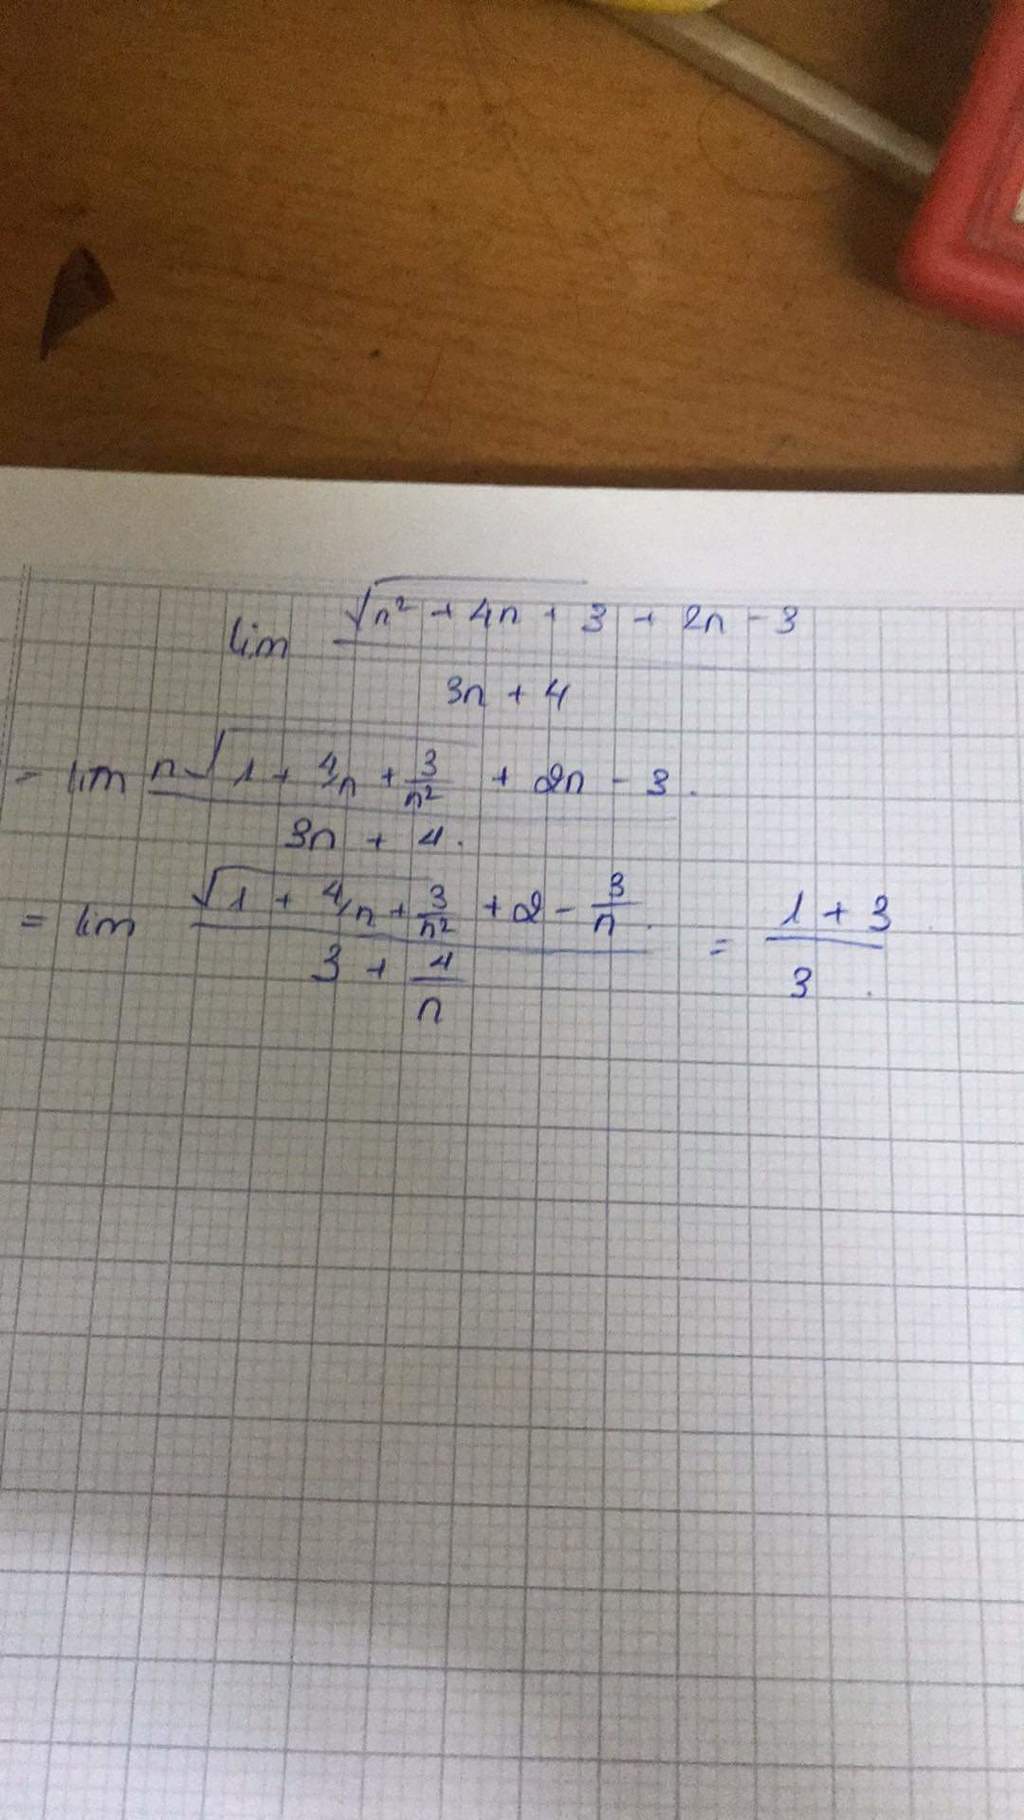 lim (√(n² + 4n + 3) + 2n - 3) / (3n + 4)
= lim (n√(1 + 4/n + 3/n²) + 2n - 3) / (3n + 4).
= lim (√(1 + 4/n + 3/n²) + 2 - 3/n) / (3 + 4/n) = (1 + 3) / 3.